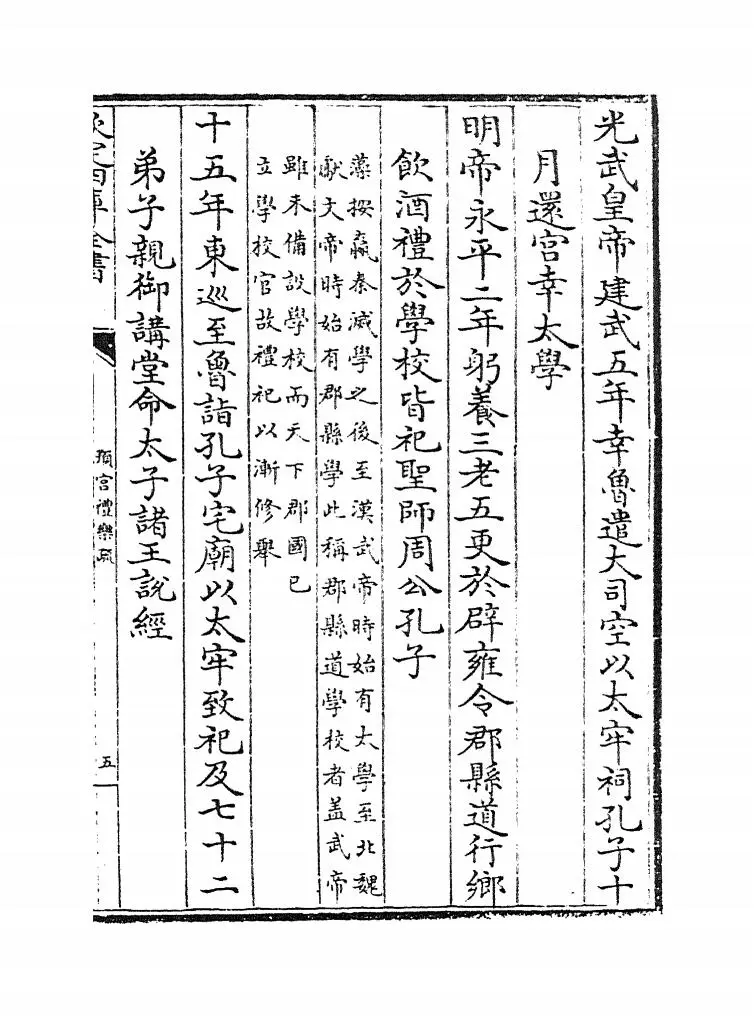 光武皇帝建武五年幸魯遣大司空以太牢祠孔子十
月還宮幸太學
明帝永平二年躬養三老五更於辟雍令郡縣道行鄉
飲酒禮於學校皆祀聖師周公孔子
藻按嬴秦滅學之後至漢武帝時始有太學至北魏
獻文帝時始有郡縣學此稱郡縣道學校者盖武帝
雖未備設學校而天下郡國已
立學校官故禮祀以漸修舉
十五年東巡至魯詣孔子宅廟以太牢致祀及七十二
弟子親御講堂命太子諸王說經
欽定四庫全書
頖宮禮樂疏
五